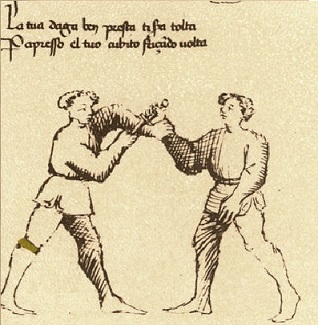 La tua daga ben presta ti fia tolta
P apresso el tuo cubito façudo uolta